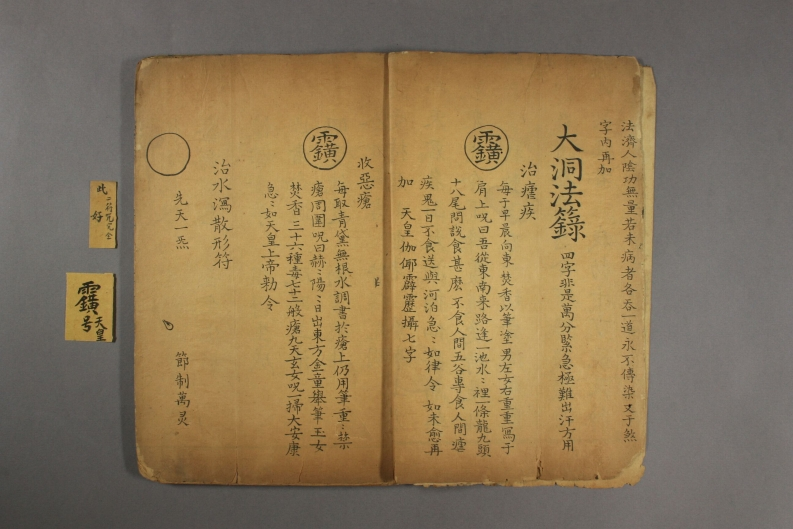 法濟人陰功無量若未病者各吞一道永不傳染又于煞
字內再加
大洞法籙 四字非是萬分緊急極難出汗方用
治瘧疾
每于早晨向東焚香以筆塗男左女右重重寫于
肩上呪曰吾從東南來路逢一池水〻裡一條龍九頭
十八尾問説食甚麽不食人間五谷專食人間瘧
疾鬼一日不食送與河泊急〻如律令 如未愈再
加 天皇伽㑘霹靂攝七字
收惡瘡
每取青黛無根水調書於瘡上仍用筆重〻禁
瘡周圍呪曰赫〻陽〻日出東方金童舉筆玉女
焚香三十六種毒七十二般瘡九天玄女呪一掃大安康
急〻如天皇上帝勅令
治水瀉散形符
先天一炁
節制萬灵
此二符
好
天皇
号